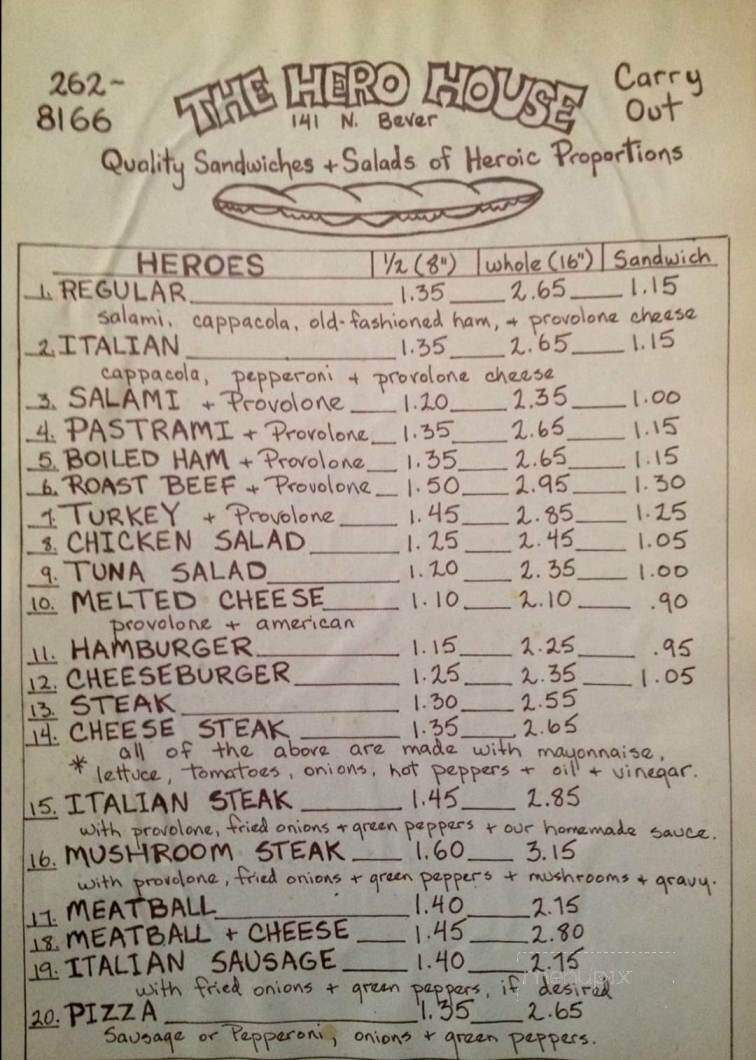 262- THE HERO HOUSE Carry
8166 141 N. Bever Out
Quality Sandwiches + Salads of Heroic Proportions
HEROES 1/2 (8") whole (16") Sandwich
1. REGULAR 1.35 2.65 1.15
salami, cappacola, old-fashioned ham, + provolone cheese
2. ITALIAN 1.35 2.65 1.15
cappacola, pepperoni + provolone cheese
3. SALAMI + Provolone 1.20 2.35 1.00
4. PASTRAMI + Provolone 1.35 2.65 1.15
5. BOILED HAM + Provolone 1.35 2.65 1.15
6. ROAST BEEF + Provolone 1.50 2.95 1.30
7. TURKEY + Provolone 1.45 2.85 1.25
8. CHICKEN SALAD 1.25 2.45 1.05
9. TUNA SALAD 1.20 2.35 1.00
10. MELTED CHEESE 1.10 2.10 .90
provolone + american
11. HAMBURGER 1.15 2.25 .95
12. CHEESEBURGER 1.25 2.35 1.05
13. STEAK 1.30 2.55
14. CHEESE STEAK 1.35 2.65
* all of the above are made with mayonnaise,
lettuce, tomatoes, onions, hot peppers + oil + vinegar.
15. ITALIAN STEAK 1.45 2.85
with provolone, fried onions + green peppers + our homemade sauce.
16. MUSHROOM STEAK 1.60 3.15
with provolone, fried onions + green peppers + mushrooms + gravy.
17. MEATBALL 1.40 2.75
18. MEATBALL + CHEESE 1.45 2.80
19. ITALIAN SAUSAGE 1.40 2.75
menupix
with fried onions + green peppers, if desired
20. PIZZA 1.35 2.65
Sausage or Pepperoni, onions + green peppers.